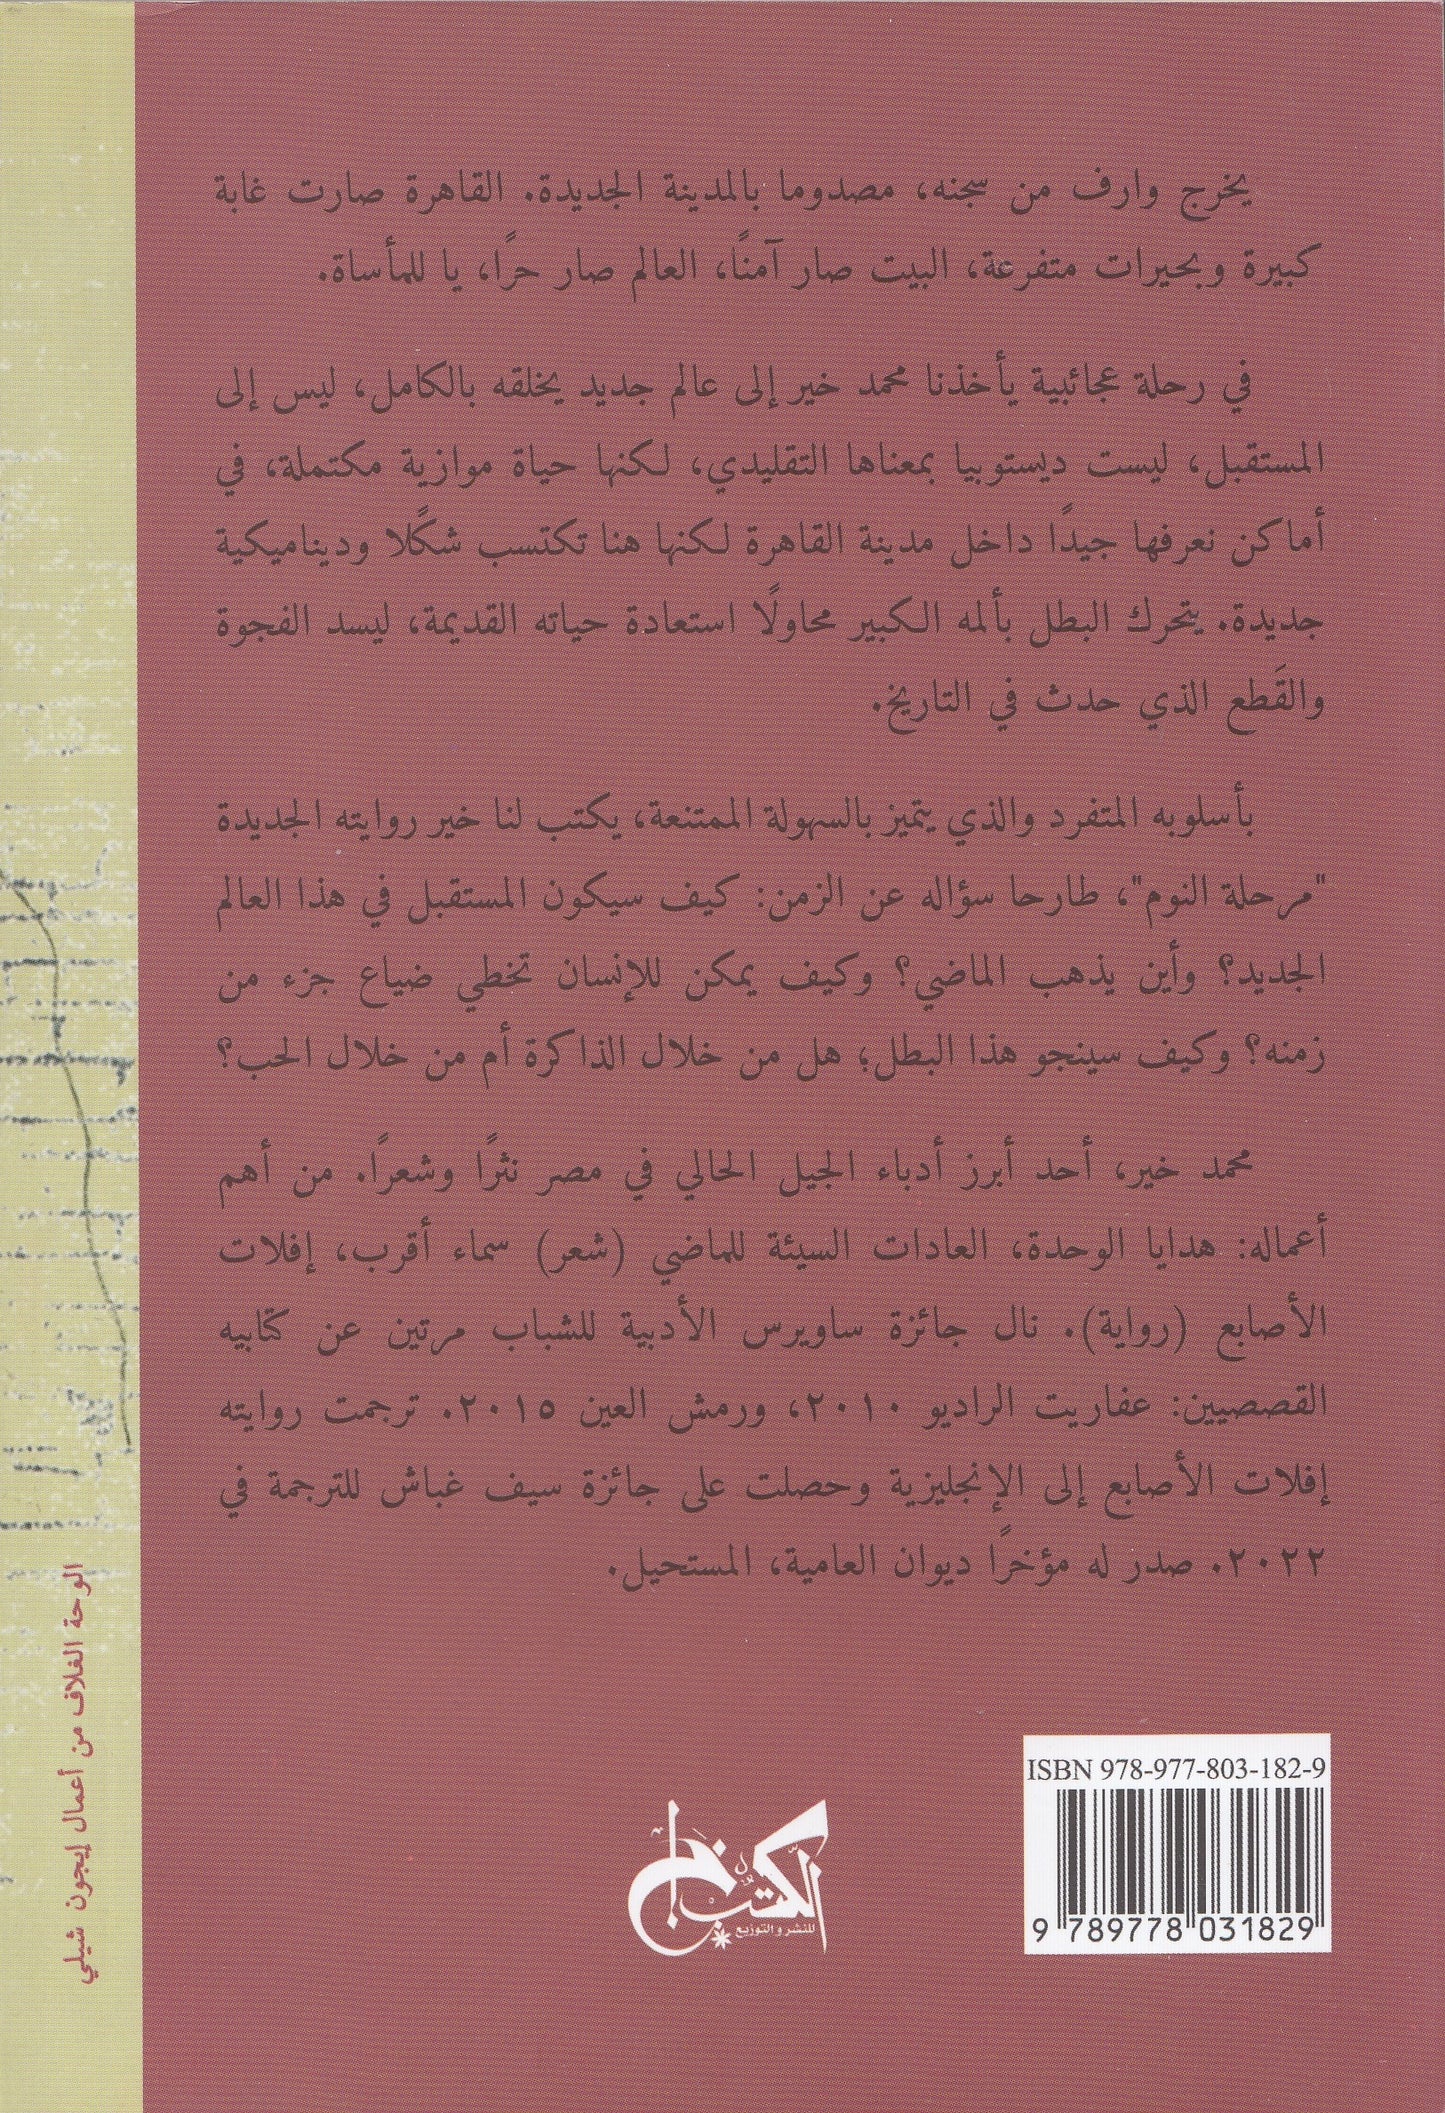 يخرج وارف من سجنه، مصدوما بالمدينة الجديدة. القاهرة صارت غابة
كبيرة وبحيرات متفرعة، البيت صار آمنًا، العالم صار حرًا، يا للمأساة.
في رحلة عجائبية يأخذنا محمد خير إلى عالم جديد يخلقه بالكامل، ليس إلى
المستقبل، ليست ديستوبيا بمعناها التقليدي، لكنها حياة موازية مكتملة، في
أماكن نعرفها جيدًا داخل مدينة القاهرة لكنها هنا تكتسب شكًلا وديناميكية
جديدة. يتحرك البطل بألمه الكبير محاولًا استعادة حياته القديمة، ليسد الفجوة
والقَطع الذي حدث في التاريخ.
بأسلوبه المتفرد والذي يتميز بالسهولة الممتنعة، يكتب لنا خير روايته الجديدة
"مرحلة النوم"، طارحا سؤاله عن الزمن: كيف سيكون المستقبل في هذا العالم
الجديد؟ وأين يذهب الماضي؟ وكيف يمكن للإنسان تخطي ضياع جزء من
زمنه؟ وكيف سينجو هذا البطل؛ هل من خلال الذاكرة أم من خلال الحب؟
محمد خير، أحد أبرز أدباء الجيل الحالي في مصر نثرًا وشعرًا. من أهم
أعماله: هدايا الوحدة، العادات السيئة للماضي (شعر) سماء أقرب، إفلات
الأصابع (رواية). نال جائزة ساويرس الأدبية للشباب مرتين عن كتابيه
القصصيين: عفاريت الراديو ٢٠١٠، ورمش العين ٢٠١٥. ترجمت روايته
إفلات الأصابع إلى الإنجليزية وحصلت على جائزة سيف غباش للترجمة في
٢٠٢٢. صدر له مؤخرًا ديوان العامية، المستحيل.
الوحة الغلاف من أعمال إيجون شيلي
الكتب خان
للنشر و التوزيع
ISBN 978-977-803-182-9
9 789778 031829